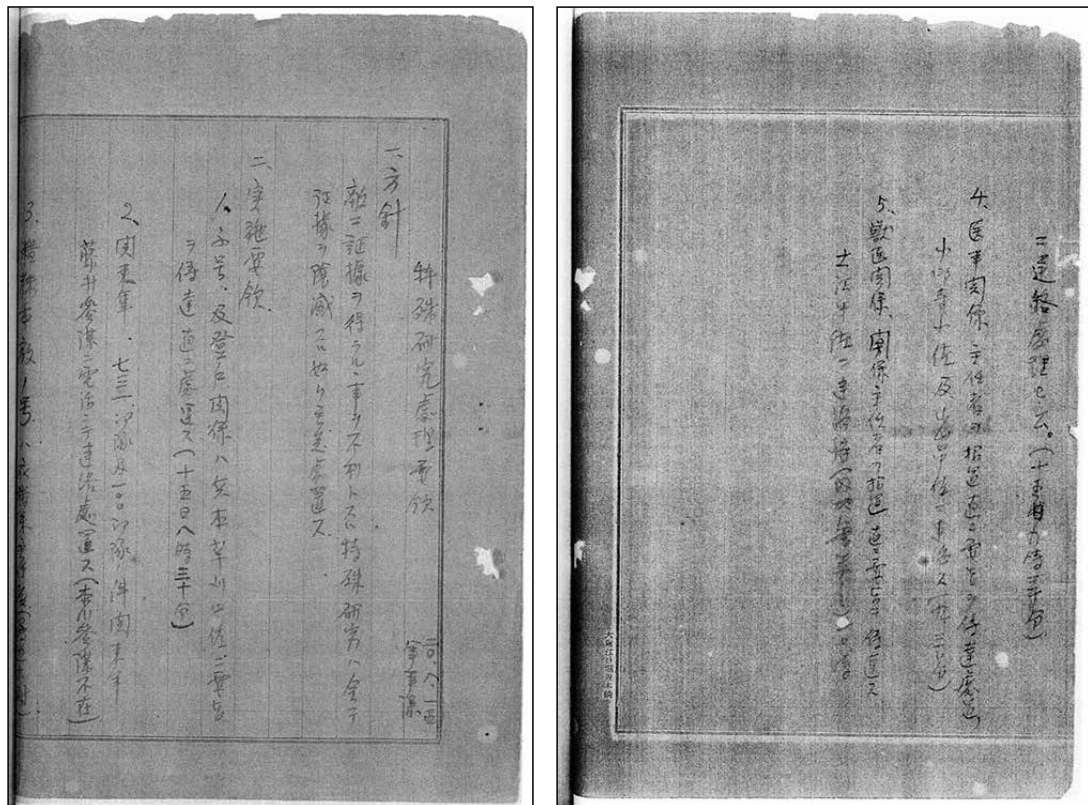 特殊研究處理要領
二〇、八、一五
軍事課
一、方針
敵ニ証據ヲ得ラルヽ事ヲ不利トスル特殊研究ハ全テ
証據ヲ陰滅スル如ク至急處置ス
二、実施要領
1、ふ号、及登戸関係ハ兵本草刈中佐ニ要旨
ヲ傳達直ニ處置ス(十五日八時三十分)
2、関東軍、七三一部隊及一〇〇部隊ノ件関東軍
藤井参謀ニ電話ニテ連絡處置ス(本川参謀不在)
3、糧秣本廠1号ハ衣糧課主任者
ニ連絡處理セ(十五日九時三十分)
4、医事関係主任者ヲ招置直ニ要旨ヲ傳達處置
小野寺少佐及小出中佐ニ連絡ス(九、三〇分)
5、獣医関係、関係主任者ヲ招置直ニ要旨ヲ傳達ス
出江中佐ニ連絡済(内地ハ書類ノミ)一〇時